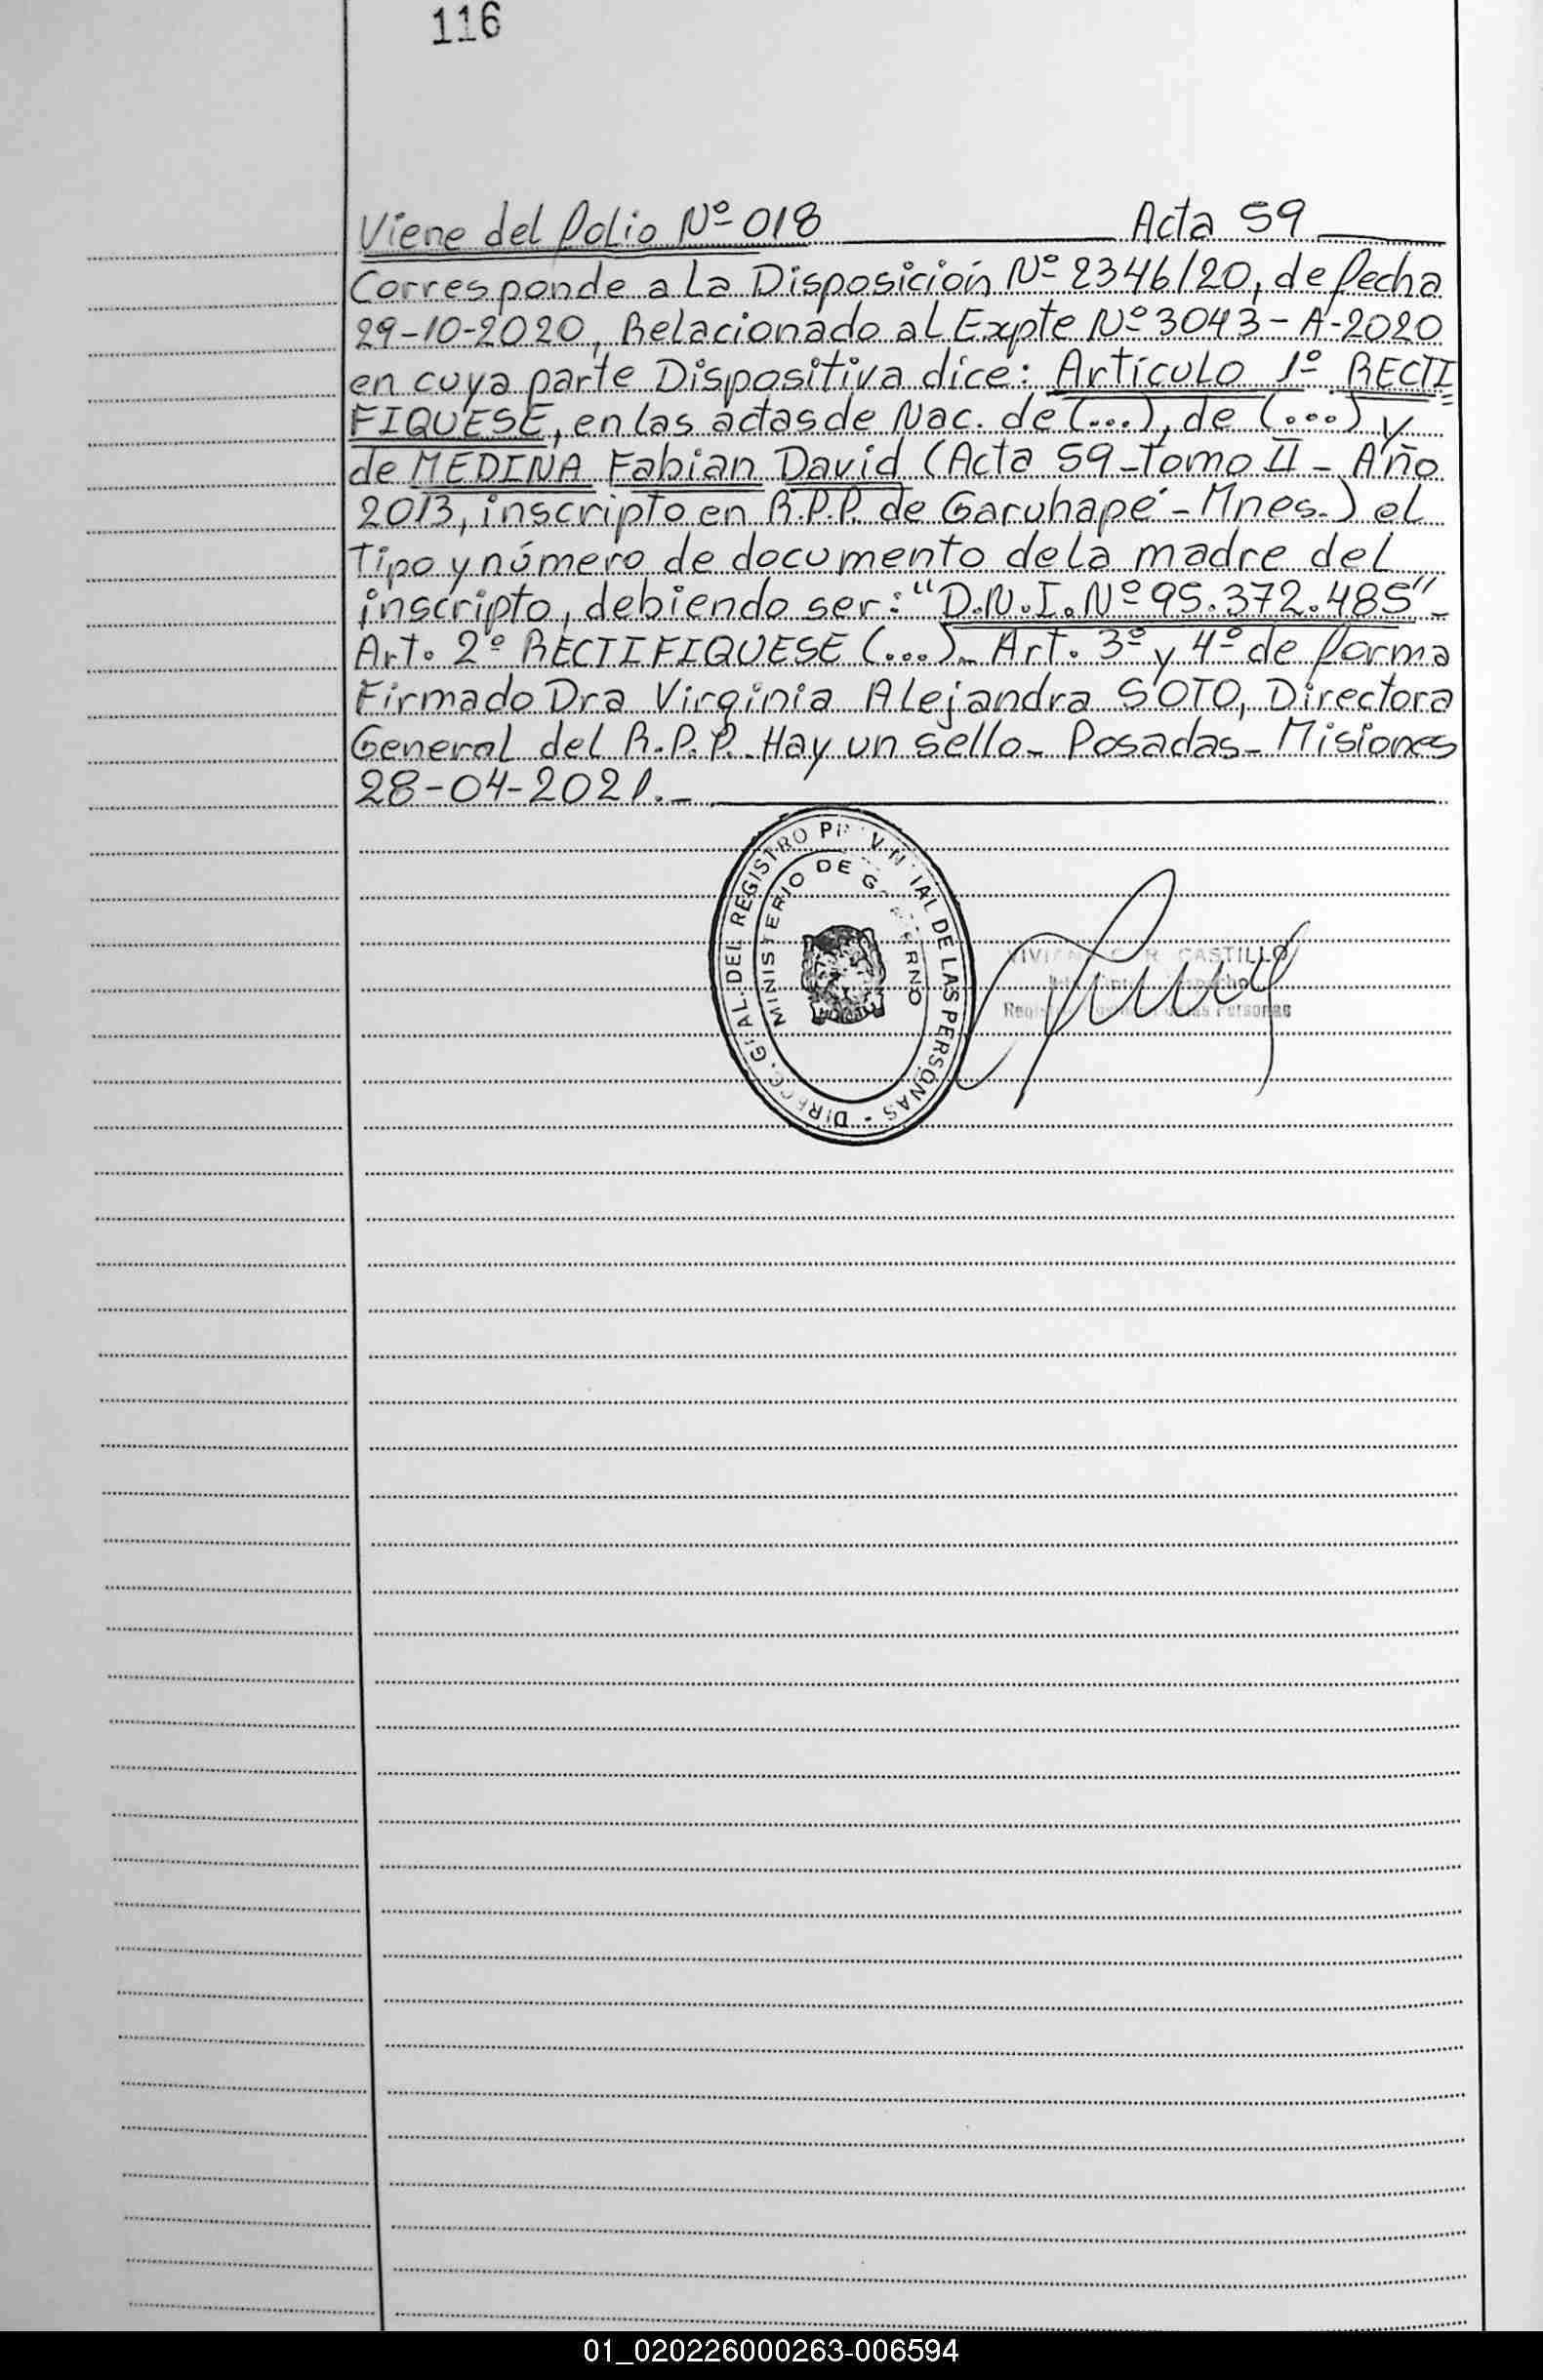 116
Viene del folio Nº 018 Acta 59
Corresponde a la Disposición Nº 2346/20, de fecha
29-10-2020, Relacionado al Expte Nº 3043-A-2020
en cuya parte Dispositiva dice: Artículo 1º RECTI
FIQUESE, en las actas de Nac. de (...), de (...) y
de MEDINA Fabian David (Acta 59-Tomo II - Año
2013, inscripto en R.P.P. de Garuhapé - Mnes.) el
Tipo y número de documento de la madre del
inscripto, debiendo ser: "D.N.I. Nº 95.372.485"-
Art. 2º RECTIFIQUESE (...)- Art. 3º y 4º de forma
Firmado Dra Virginia Alejandra SOTO, Directora
General del R.P.P. Hay un sello- Posadas- Misiones
28-04-2021.-
DIREC. GRAL. DEL REGISTRO PROVINCIAL DE LAS PERSONAS -
MINISTERIO DE GOBIERNO
CASTILLO
Personas
01_020226000263-006594